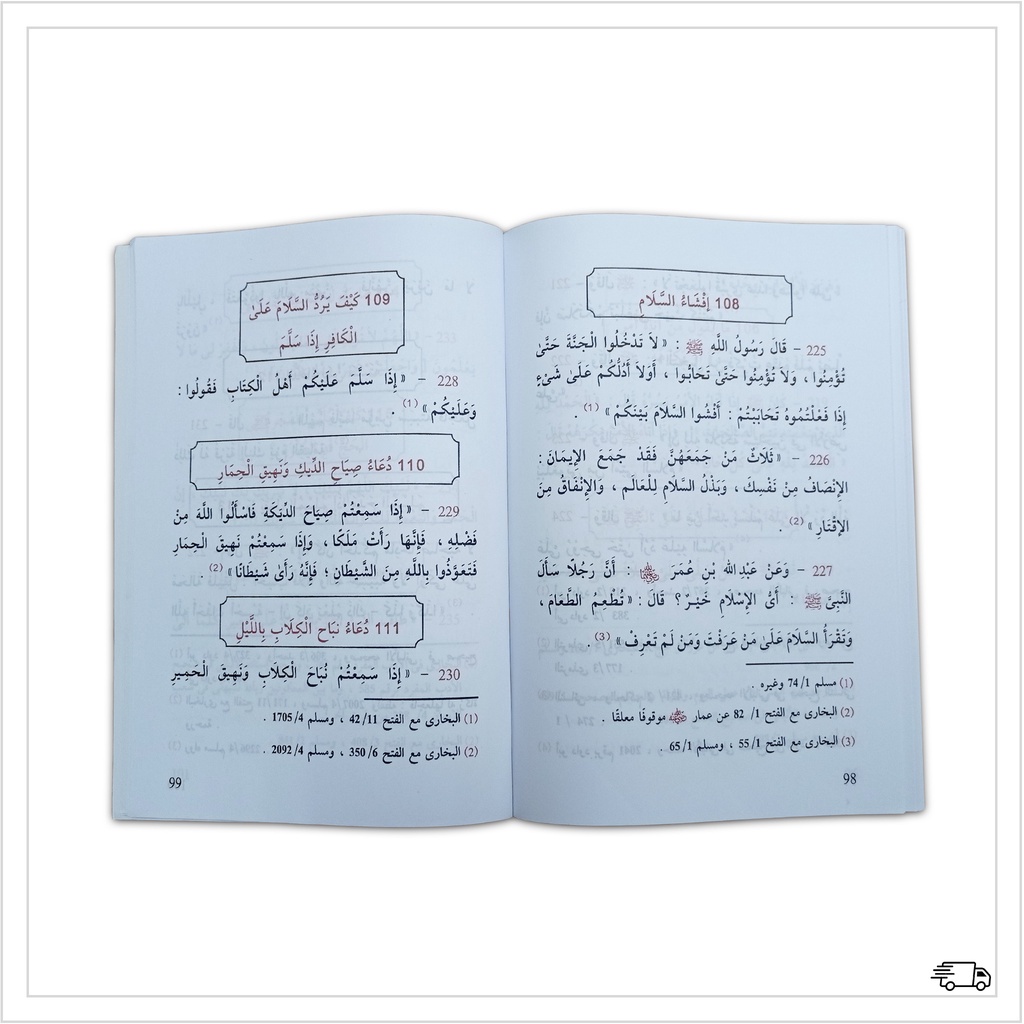 108 إِفْشَاءُ السَّلَامِ
225 – قَالَ رَسُولُ اللَّهِ ﷺ : «لَا تَدْخُلُوا الْجَنَّةَ حَتَّىٰ
تُؤْمِنُوا ، وَلَا تُؤْمِنُوا حَتَّىٰ تَحَابُّوا ، أَوَلَا أَدُلُّكُمْ عَلَىٰ شَىْءٍ
إِذَا فَعَلْتُمُوهُ تَحَابَبْتُمْ : أَفْشُوا السَّلَامَ بَيْنَكُمْ» (1)
226 – «ثَلَاثٌ مَنْ جَمَعَهُنَّ فَقَدْ جَمَعَ الإِيمَانَ :
الإِنْصَافُ مِنْ نَفْسِكَ ، وَبَذْلُ السَّلَامِ لِلْعَالَمِ ، وَالإِنْفَاقُ مِنَ
الإِقْتَارِ» (2) .
227 – وَعَنْ عَبْدِ اللَّهِ بْنِ عُمَرَ ﷺ : أَنَّ رَجُلًا سَأَلَ
النَّبِىَّ ﷺ : أَىُّ الإِسْلَامِ خَيْرٌ ؟ قَالَ : «تُطْعِمُ الطَّعَامَ ،
وَتَقْرَأُ السَّلَامَ عَلَىٰ مَنْ عَرَفْتَ وَمَنْ لَمْ تَعْرِفْ» (3) .
(1) مسلم 1/ 74 وغيره .
(2) البخارى مع الفتح 1/ 82 عن عمار موقوفًا معلقًا .
(3) البخارى مع الفتح 1/ 55 ، ومسلم 1/ 65 .
98
109 كَيْفَ يَرُدُّ السَّلَامَ عَلَىٰ
الْكَافِرِ إِذَا سَلَّمَ
228 – «إِذَا سَلَّمَ عَلَيْكُمْ أَهْلُ الْكِتَابِ فَقُولُوا :
وَعَلَيْكُمْ» (1) .
110 دُعَاءُ صِيَاحِ الدِّيكِ وَنَهِيقِ الْحِمَارِ
229 – «إِذَا سَمِعْتُمْ صِيَاحَ الدِّيَكَةِ فَاسْأَلُوا اللَّهَ مِنْ
فَضْلِهِ ، فَإِنَّهَا رَأَتْ مَلَكًا ، وَإِذَا سَمِعْتُمْ نَهِيقَ الْحِمَارِ
فَتَعَوَّذُوا بِاللَّهِ مِنَ الشَّيْطَانِ ؛ فَإِنَّهُ رَأَىٰ شَيْطَانًا» (2) .
111 دُعَاءُ نُبَاحِ الْكِلَابِ بِاللَّيْلِ
230 – «إِذَا سَمِعْتُمْ نُبَاحَ الْكِلَابِ وَنَهِيقَ الْحَمِيرِ
(1) البخارى مع الفتح 11/ 42 ، ومسلم 4/ 1705 .
(2) البخارى مع الفتح 6/ 350 ، ومسلم 4/ 2092 .
99